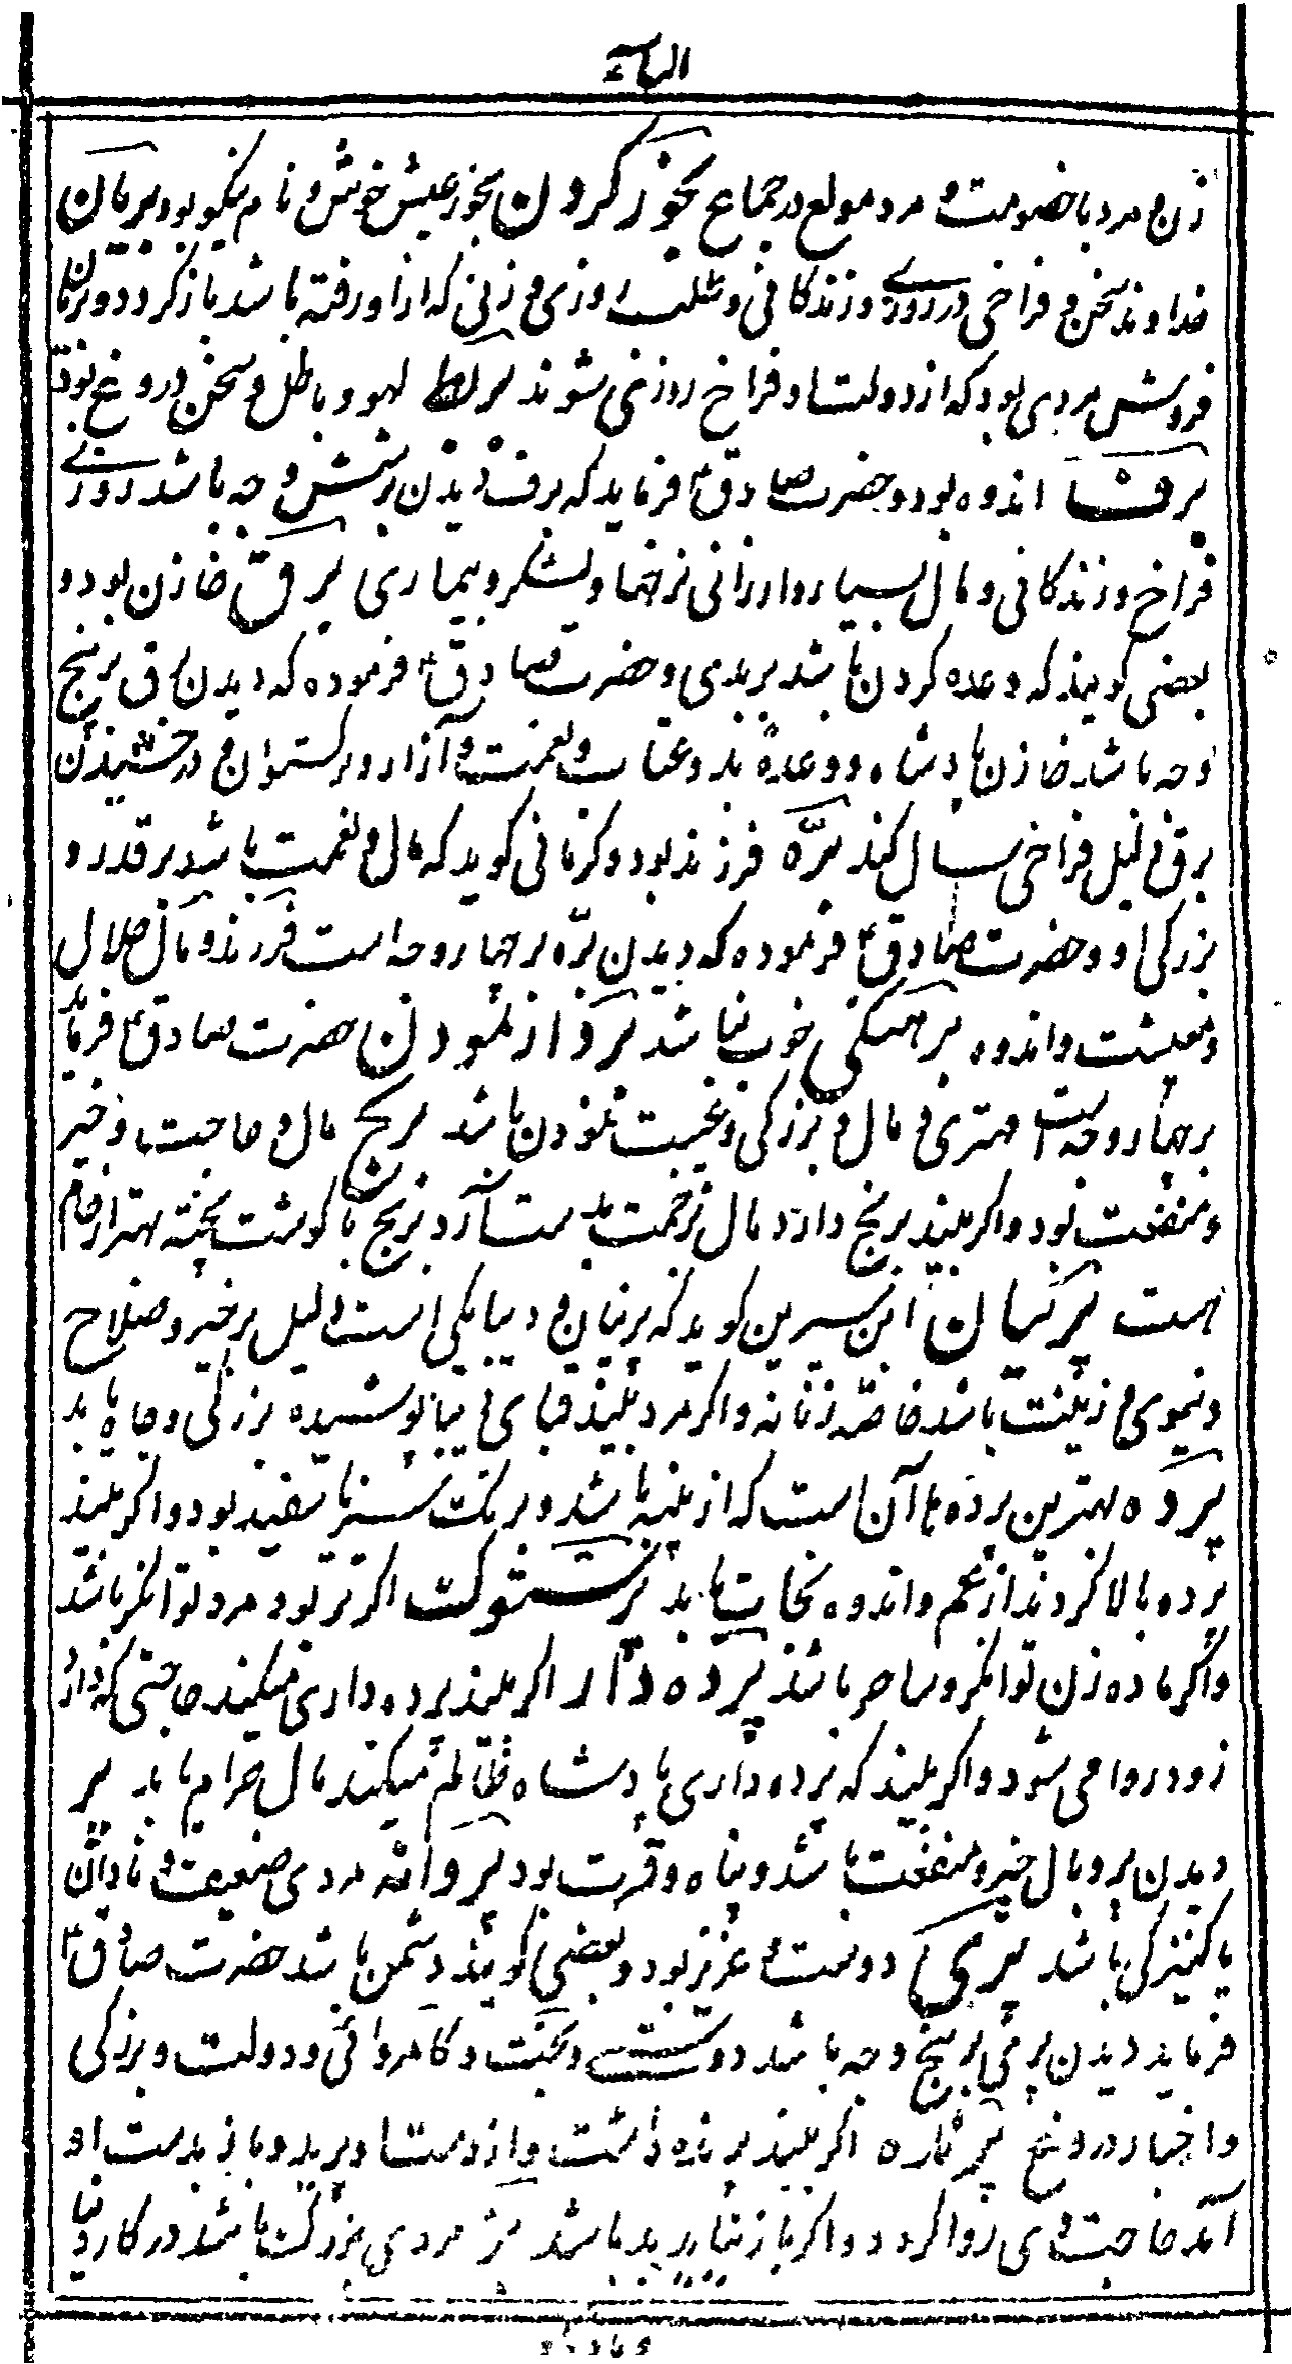 الباء
زن و مرد با خصومت و مرد مولع در جماع بخور کردن بخور عیش خوش و نام نیکو بود بریان
خداوند سخن و فراخی در روزی و زندکانی و طلب روزی و زنی که از او رفته باشد باز کردد و بریان
فروش مردی بود که از دولت او فراخ روزی شوند بربط لهو و باطل و سخن دروغ بود
برف اندوه بود و حضرت صادق ع فرماید که برف دیدن بر شش وجه باشد روزی
فراخ و زندکانی و مال بسیار و ارزانی نرخها و لشکر و بیماری برق خازن بود و
بعضی کویند که وعده کردن باشد بر بدی و حضرت صادق ع فرموده که دیدن برق بر پنج
وجه باشد خازن پادشاه و وعده بد و عتاب و نعمت و آزار و برکستوان و درخشیدن
برق دلیل فراخی سال کند برّه فرزند بود و کرمانی کوید که مال و نعمت باشد بر قدر و
بزرکی او و حضرت صادق ع فرموده که دیدن برّه بر چهار وجه است فرزند و مال حلال
و معیشت و اندوه برهنکی خوب نباشد پرواز نمودن حضرت صادق ع فرماید
بر چهار وجه است مهتری و مال و بزرکی و نخست نمودن باشد برنج مال و حاجت و خیر
و منفعت بود و اکر بیند برنج دارد مال بزحمت بدست آرد برنج با کوشت پخته بهتر از خام
است پرنیان ابن سیرین کوید که پرنیان و دیبا یکی است دلیل بر خیر و صلاح
و نیکوی و زینت باشد خاصّه زنانه و اکر مرد بیند قبای دیبا پوشیده بزرکی و جاه یابد
پرده بهترین پرده ها آن است که از پنبه باشد و برنک سبز یا سفید بود و اکر بیند
پرده بالا کردند از غم و اندوه نجات یابد پرستوک اکر نر بود مرد توانکر باشد
و اکر ماده زن توانکر و ساحر باشد پرده دار اکر بیند پرده داری میکند حاجتی که دارد
زود روا می شود و اکر بیند که پرده داری پادشاه ظالم میکند مال حرام یابد پر
دیدن پر و بال خیر و منفعت باشد و پناه و قوت بود پروانه مردی ضعیف و نادان
یا کنیزکی باشد پری دوست و عزیز بود و بعضی کویند دشمن باشد حضرت صادق ع
فرماید دیدن پری بر پنج وجه باشد دوستی و بخت و کامروائی و دولت و بزرکی
و اخبار دروغ پرنده اکر بیند پرنده داشت و از دست او پرید و باز بدست او
آمد حاجت وی روا کردد و اکر باز نیاید بد باشد بز مردی بزرک باشد در کار دنیا